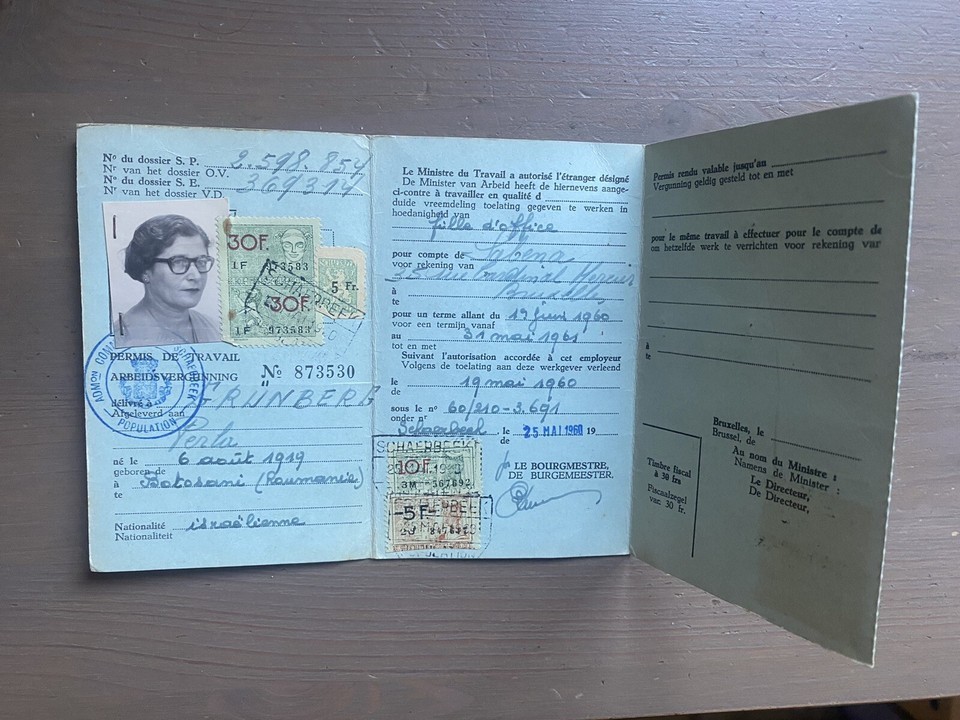 No du dossier S. P. 2.598.854
Nr van het dossier O.V.
No du dossier S. E. 369/314
Nr van het dossier V.D.
30F.
1F 973583
30F.
1F 973583
5 Fr.
SCHAERBEEK
PERMIS DE TRAVAIL
ARBEIDSVERGUNNING
No 873530
ADMON COMM SCHAERBEEK
POPULATION
délivré à
Afgeleverd aan
GRÜNBERG
Perla
né le 6 août 1919
geboren de
à Botosani (Roumanie)
te
Nationalité israélienne
Nationaliteit
Le Ministre du Travail a autorisé l'étranger désigné
De Minister van Arbeid heeft de hiernevens aange-
ci-contre à travailler en qualité d
duide vreemdeling toelating gegeven te werken in
hoedanigheid van
fille d'office
pour compte de Sabena
voor rekening van
35 rue Cardinal Mercier
à Bruxelles
te
pour un terme allant du 19 juin 1960
voor een termijn vanaf
au 31 mai 1961
tot en met
Suivant l'autorisation accordée à cet employeur
Volgens de toelating aan deze werkgever verleend
le 19 mai 1960
de
sous le no 60/210-3.691
onder nr
Schaerbeek, le 25 MAI 1960 19
de
SCHAERBEEK
10F.
3M -567892
-5F-
LE BOURGMESTRE,
DE BURGEMEESTER.
Permis rendu valable jusqu'an
Vergunning geldig gesteld tot en met
pour le même travail à effectuer pour le compte de
om hetzelfde werk te verrichten voor rekening var
à
te
Bruxelles, le
Brussel, de
Au nom du Ministre :
Namens de Minister :
Le Directeur,
De Directeur,
Timbre fiscal
à 30 frs
Fiscaalzegel
van 30 fr.